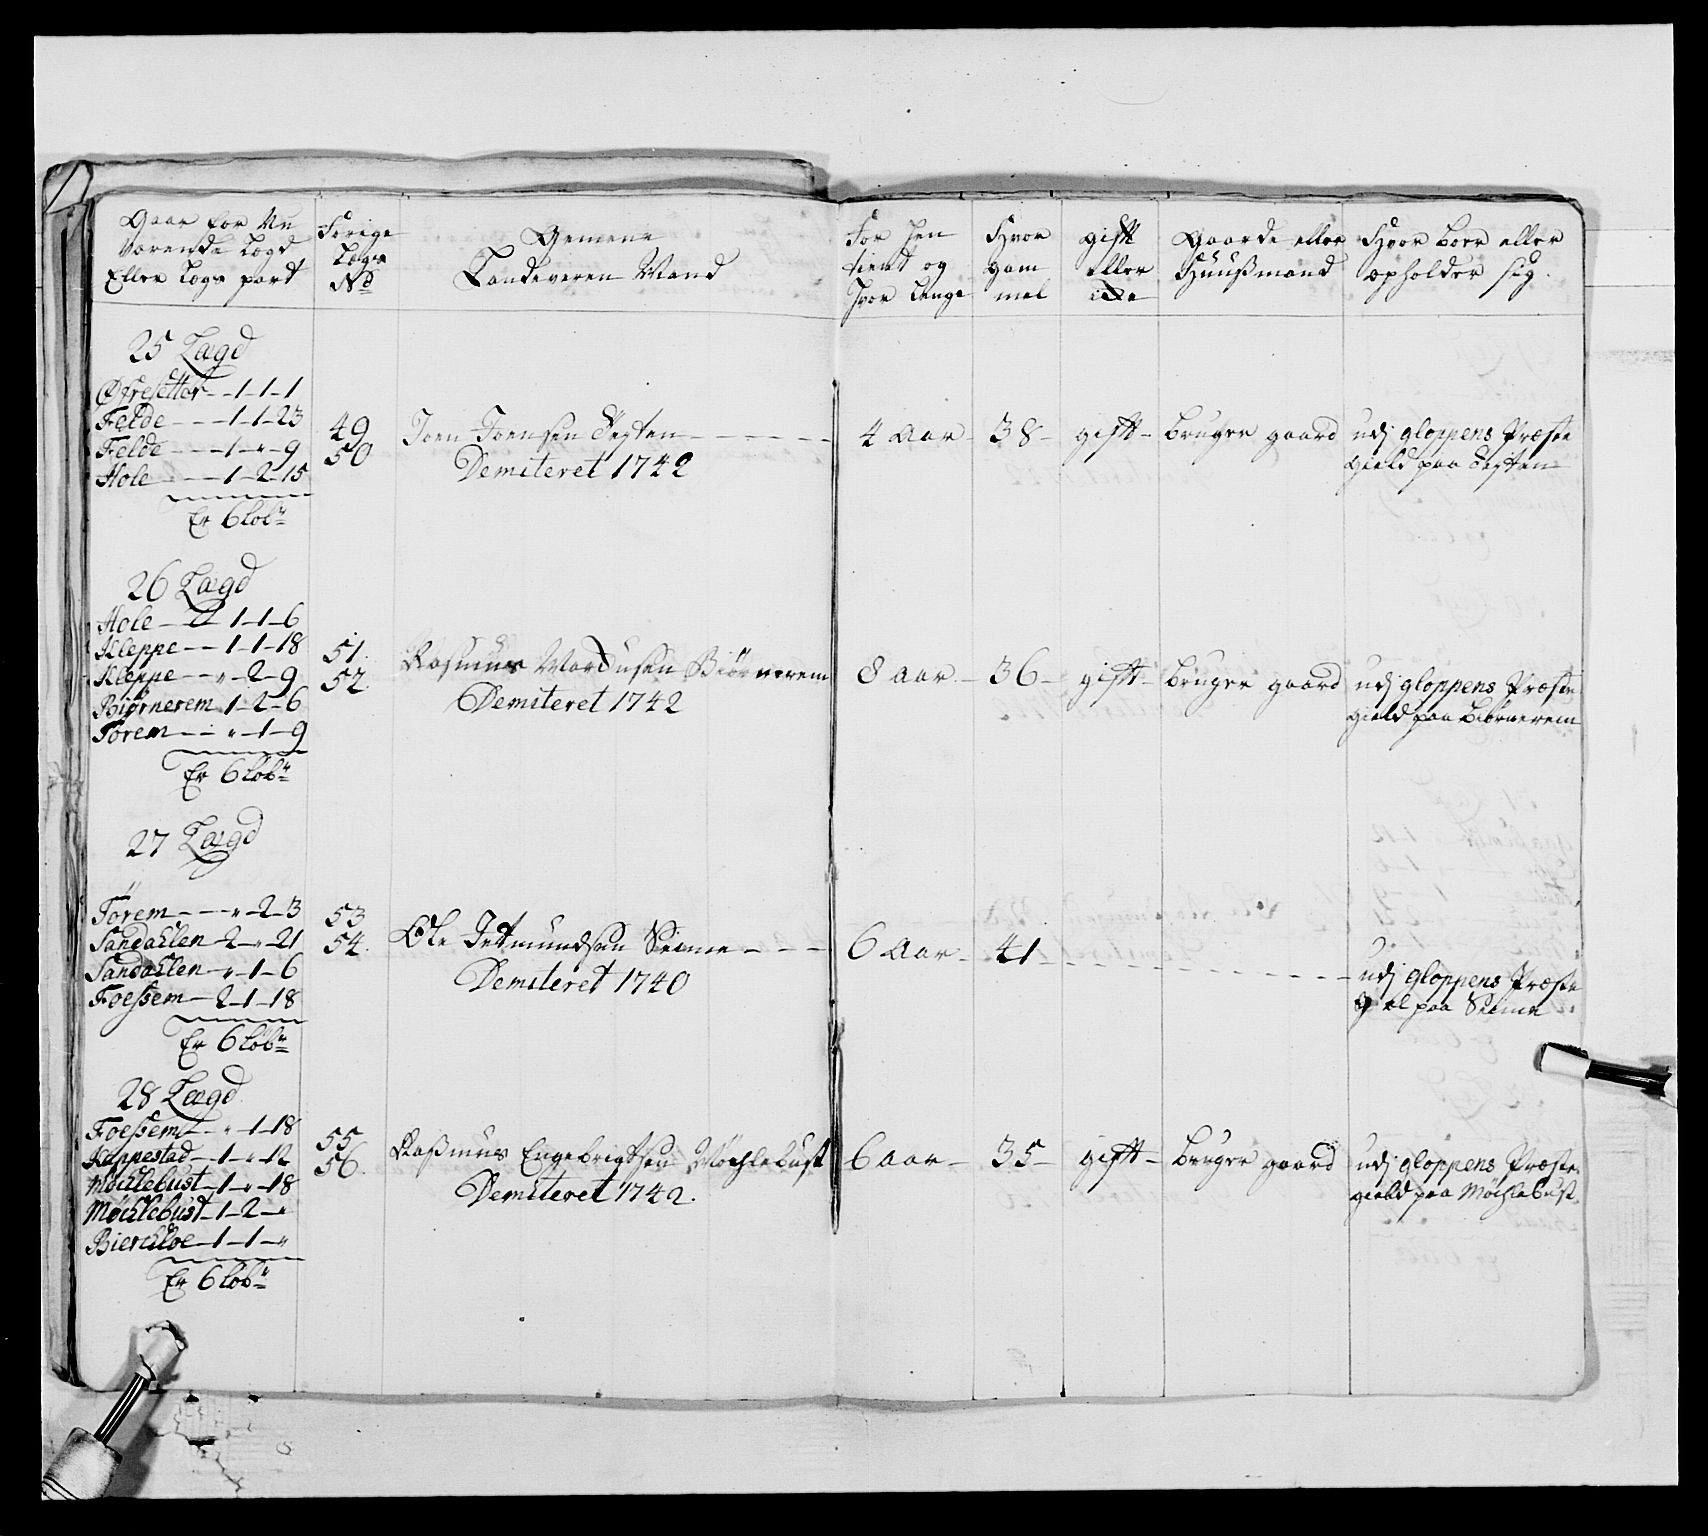 Gaar for Nu
værende Lægd
Eller Lægs part
Forige
Lægs
No
Gemene
Landeværn Mand
For hen
tient og
hvor længe
Hvor
gam
mel
gift
eller
icke
Gaarde eller
Huusmand
Hvor boer eller
opholder sig.
25 Lægd
Øfresetter - - 1 - 1 - 1
Felde - - - 1 - 1 - 23
Felde - - - 1 - " - 9
Hole - - - 1 - 2 - 15
Er 6 løb
49
50
Joen Joensen
Demiteret 1742
4 Aar - 38 - gift - bruger gaard
udj gloppens Præste
gield paa
26 Lægd
Hole - - 1 - 1 - 6
Kleppe - - 1 - 1 - 18
Kleppe - - " - 2 - 9
Biørnerem 1 - 2 - 6
Tørem - - " - 1 - 9
Er 6 løb
51.
52.
Rasmus Biørnerem
Demiteret 1742
8 Aar - 36 - gift - bruger gaard
udj gloppens Præste
gield paa biørnerem
27 Lægd
Tørem - - - " - 2 - 3
Sandahlen - 2 - " - 21
Sandahlen - " - 1 - 6
Foessem - 2 - 1 - 18
Er 6 løb
53
54.
Ole Jetmundsen Seime - - -
Demiteret 1740
6 Aar - 41 - - -
udj gloppens Præste
paa Seime
28 Lægd
Foessem - " - 1 - 18
Reppestad - 1 - " - 12
Møchlebust - 1 - " - 18
Møchlebust - 1 - 2 - "
Bierchloe - 1 - 1 - "
Er 6 løb
55
56.
Rasmus Engebrigtsen Møchlebust
Demiteret 1742.
6 aar - 35 - gift - bruger gaard
udj gloppens Præste
gield paa Møchlebust